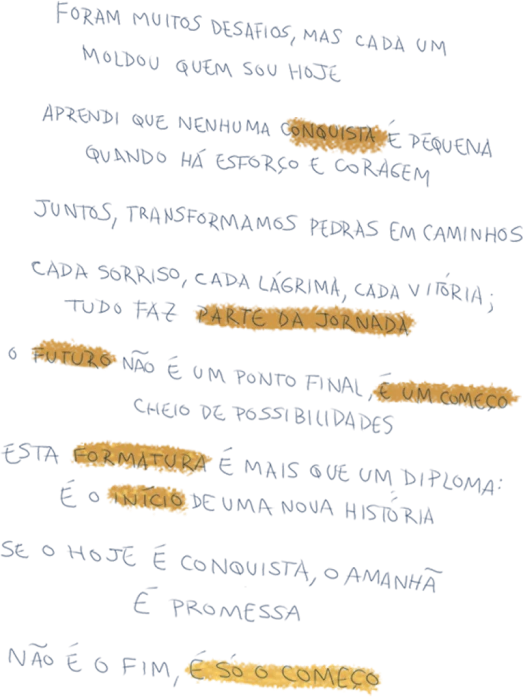 FORAM MUITOS DESAFIOS, MAS CADA UM
MOLDOU QUEM SOU HOJE
APRENDI QUE NENHUMA CONQUISTA É PEQUENA
QUANDO HÁ ESFORÇO E CORAGEM
JUNTOS, TRANSFORMAMOS PEDRAS EM CAMINHOS
CADA SORRISO, CADA LÁGRIMA, CADA VITÓRIA;
TUDO FAZ PARTE DA JORNADA
O FUTURO NÃO É UM PONTO FINAL, É UM COMEÇO
CHEIO DE POSSIBILIDADES
ESTA FORMATURA É MAIS QUE UM DIPLOMA:
É O INÍCIO DE UMA NOVA HISTÓRIA
SE O HOJE É CONQUISTA, O AMANHÃ
É PROMESSA
NÃO É O FIM, É SÓ O COMEÇO